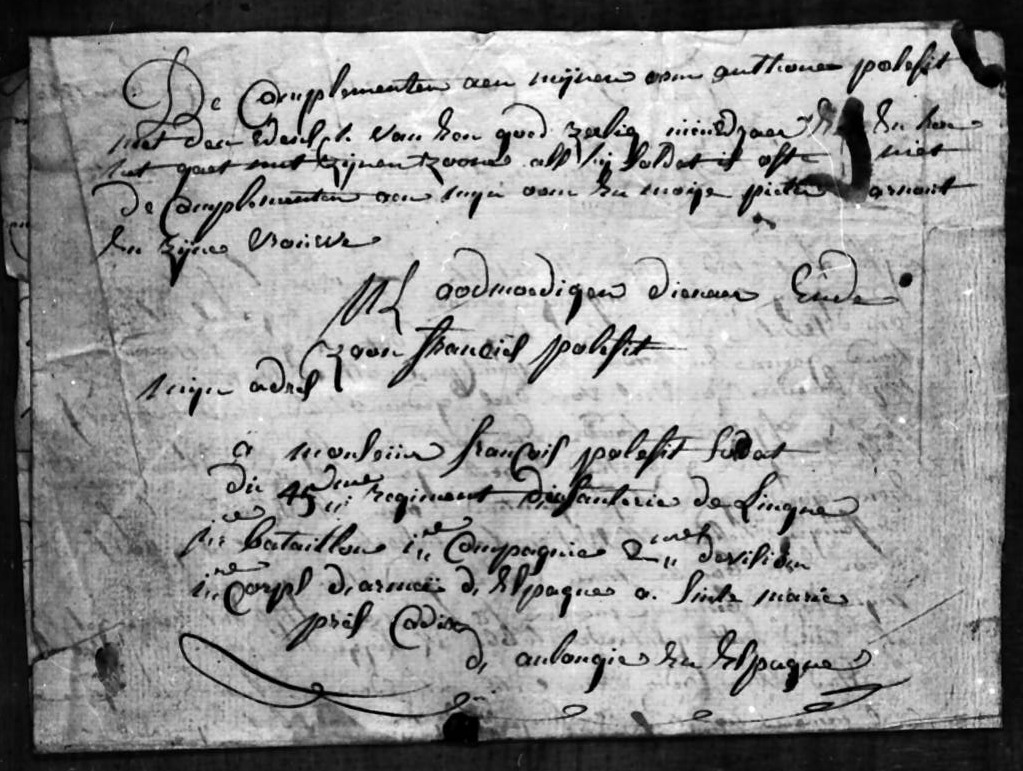 De Complementen aen mijnen oom anthone polesit
met den van hon goed zeelig nieuwdzaer En hoe
het gaet met zijnen zoone als hij soldat is oft niet
De Complementen aen mijn oom En moije pieter arnout
En zijne vrouwe
UL oodmoedigen dienaer Ende
zoon françies polesit
mijn adres
a monseiiur françois polesit soldat
du 45eme regiment dinfanterie de Lingne
1re bataillon 1re Compagnie 2met devision
1re Corps darmeë d Espagne a sinte marie
prës Cadix
d anlougie En Espagne